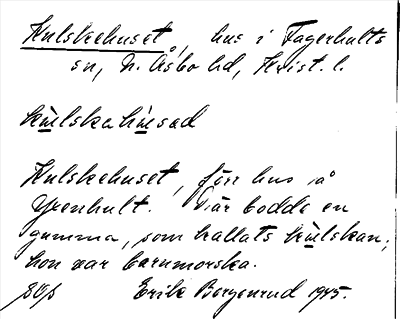 Kulskehuset, hus i Fagerhults
sn, N. Åsbo hd, Krist. l.
kùlskahùsad
Kulskehuset, förr hus på
Yxenhult. Där bodde en
gumma, som kallats kùlskan;
hon var barnmorska.
Erik Borgenrud 1945.